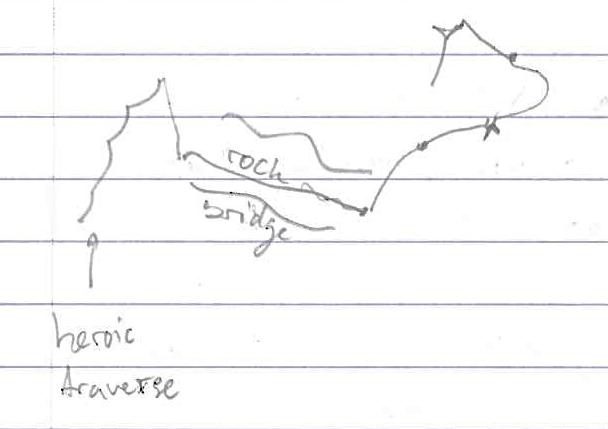 rock
bridge
heroic
traverse